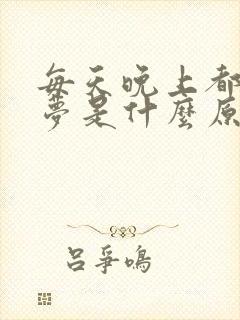 每天晚上都
夢是什麼原
吕爭鳴